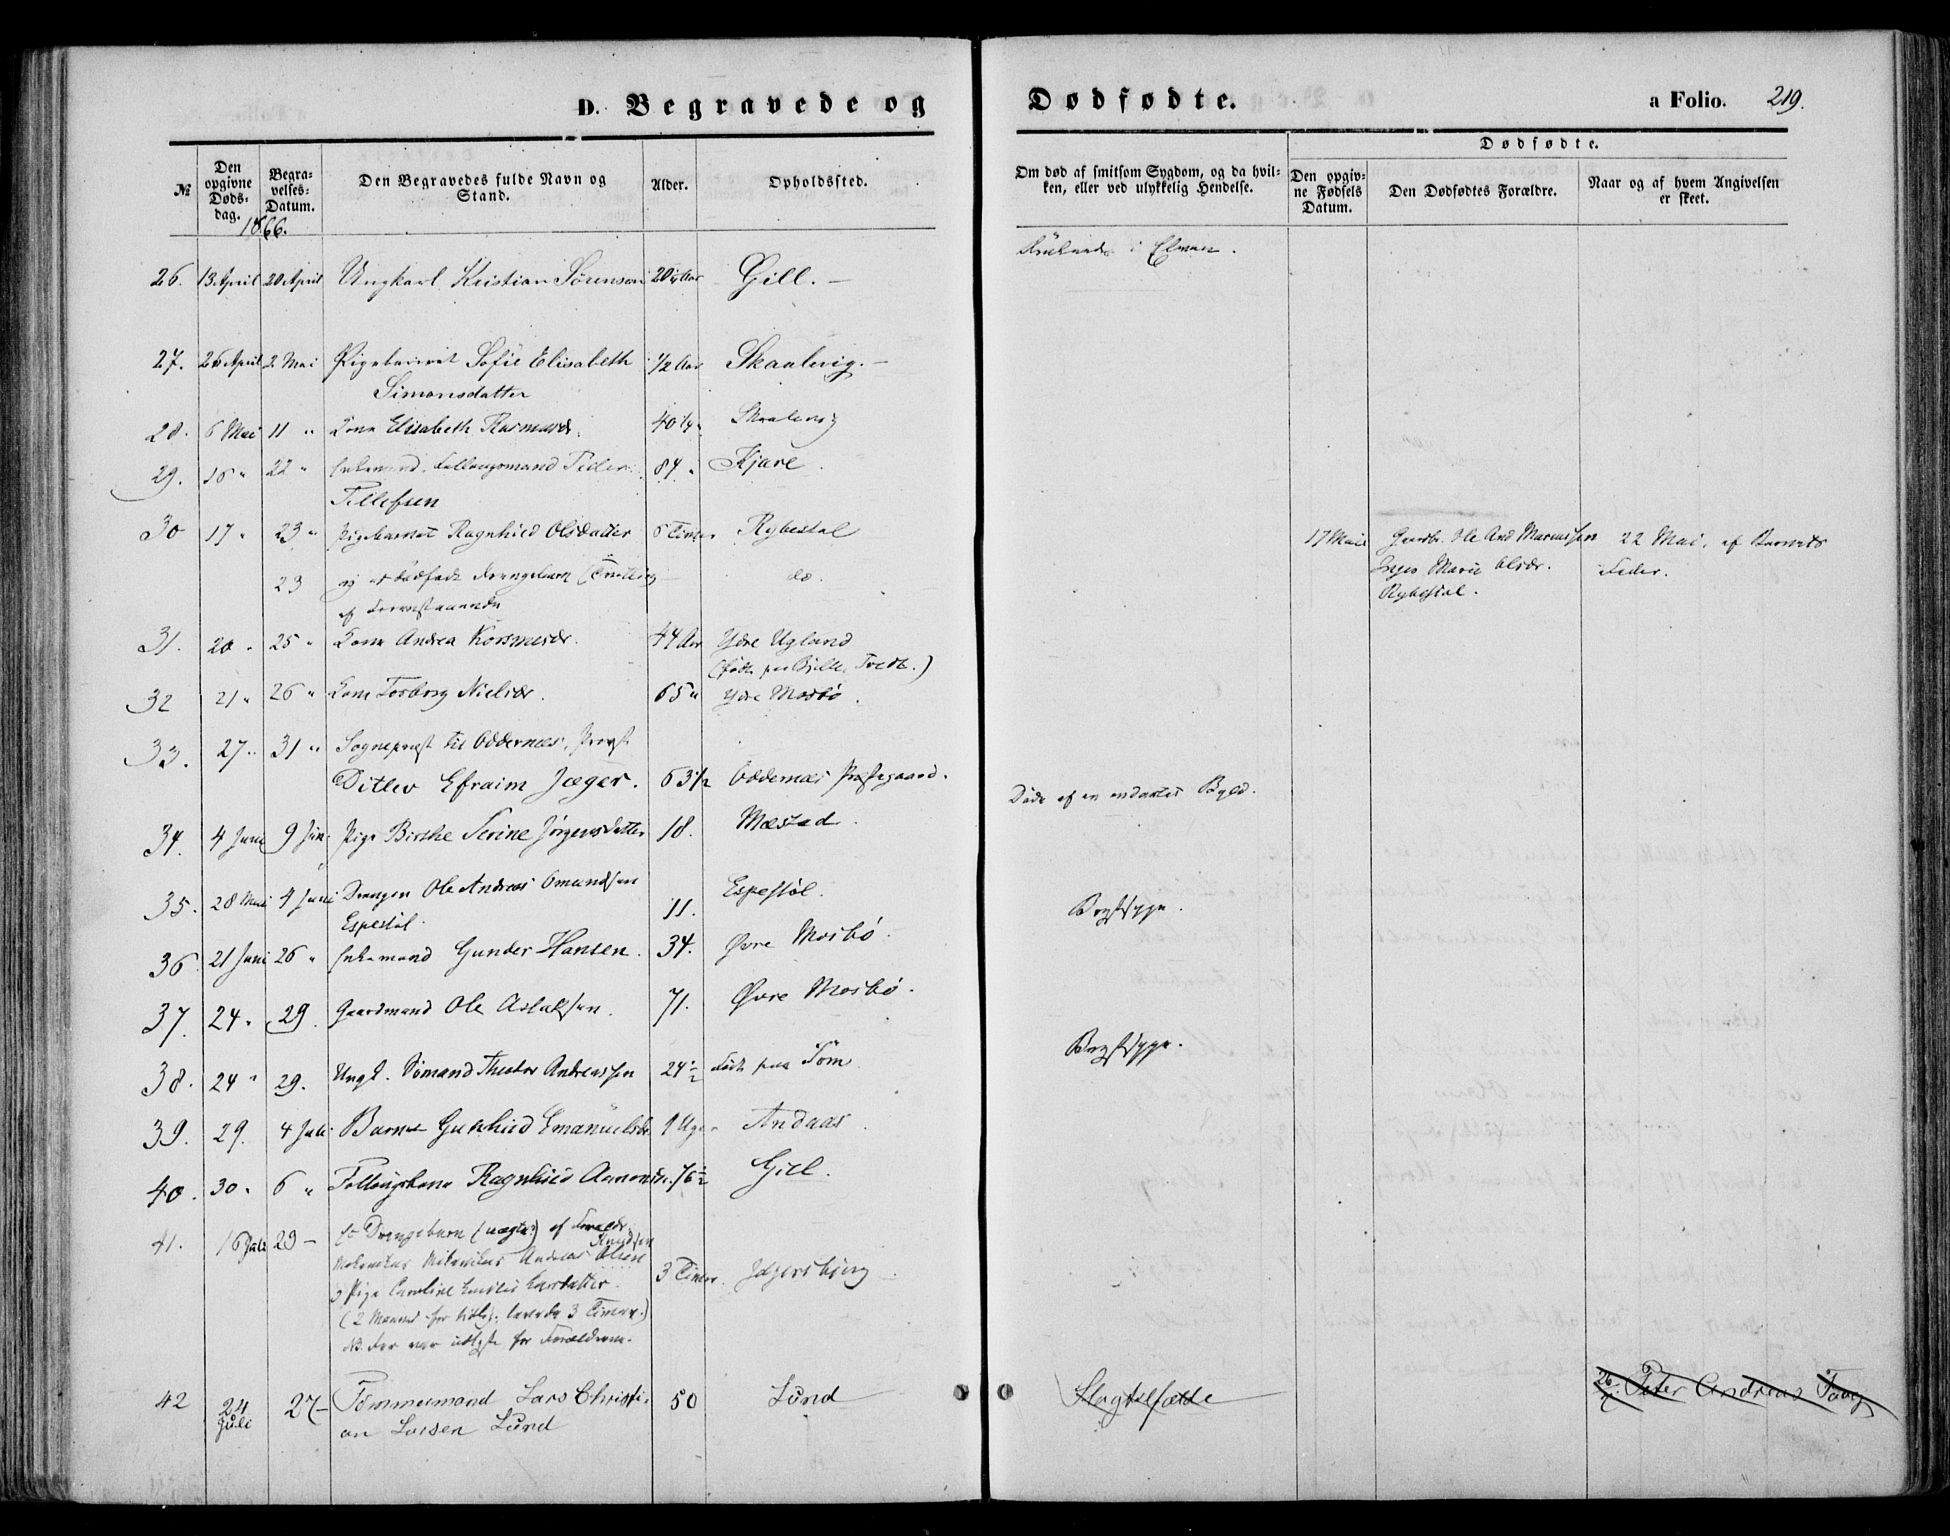 D. Begravede og
Dødfødte.
a Folio. 219.
№
Den opgivne Døds-dag.
Begra-velses-Datum.
Den Begravedes fulde Navn og Stand.
Alder.
Opholdssted.
Om død af smitsom Sygdom, og da hvil-ken, eller ved ulykkelig Hendelse.
Dødfødte.
Den opgiv-ne Fødsels Datum.
Den Dødfødtes Forældre.
Naar og af hvem Angivelsen er skeet.
1866.
26. 13 April 20 April Ungkarl Kristian Sørensen 20 Aar Gill. — i Elven.
27. 26 April 2 Mai Pigebarnet Sofie Elisabeth 1/2 Aar Skaalevig. —
Simonsdatter
28. 6 Mai 11 " Kone Elisabeth Rasmusdr. 40 Skaalevig
29. 16 " 22 " Enkemand, Følaugsmand Peder 84 " Kjære.
Tellefsen
30 17 " 23 " Pigebarnet Ragnhild Olsdatter 6 Timer Rybestøl 17 Mai Gaardbr. Ole And Marcussen 22 Mai, af Barnets
23 og et dødfødt Drengebarn (Tvilling do. Marie Olsdr. Fader.
af Foranstaaende Rybestøl.
31. 20 " 25 " Kone Andrea Korsmesdr. 44 Aar Ydre Ugland
32 21 " 26 " Kone Torborg Nielsdr. 65 " Ydre Mosbø.
33. 27 " 31 " Sognepræst til Oddernæs, Provst
Ditlev Efraim Jæger. 63 1/2 Oddernæs Præstegaard. Døde af en Byld.
34. 4 Juni 9 Juni Pige Birthe Serine Jørgensdatter 18. Mæstad.
35. 28 Mai 4 Juni Drengen Ole Andreas Omundsen 11. Espestøl. Brystsyge.
Espestøl.
36. 21 Juni 26 " Enkemand Gunder Hansen. 34. Øvre Mosbø.
37. 24 " 29. Gaardmand Ole Aslaksen. 71. Øvre Mosbø.
38. 24 " 29. Ungk. Sømand Theodor Andreassen 24 1/2 født paa Tøm Brystsyge.
39. 29. 4 Juli Barnet Gunhild Emanuelsdr. 1 Uger Andaas.
40. 30 " 6 " Føllaugskone Ragnhild Aamondsdr. 76 1/2 Gill.
41. 16 Juli 29 — Et Drengebarn (uægte) af Forældr.
Andreas Olsen Knudsen
Pige Caroline Larsdatter. 3 Timer. Jægersbjerg
(2 Maaned for tidlig, levede 3 Timer.)
for Forældrene.
42 24 Juli 27 — Tømmermand Lars Christi- 50 Lund Slagtilfælde Peter Andreas
an Larsen Lund